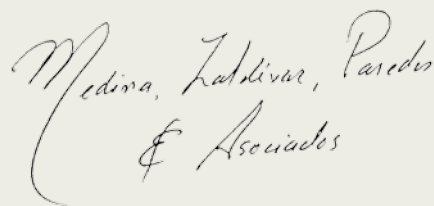 Medina, Zaldívar, Paredes
& Asociados